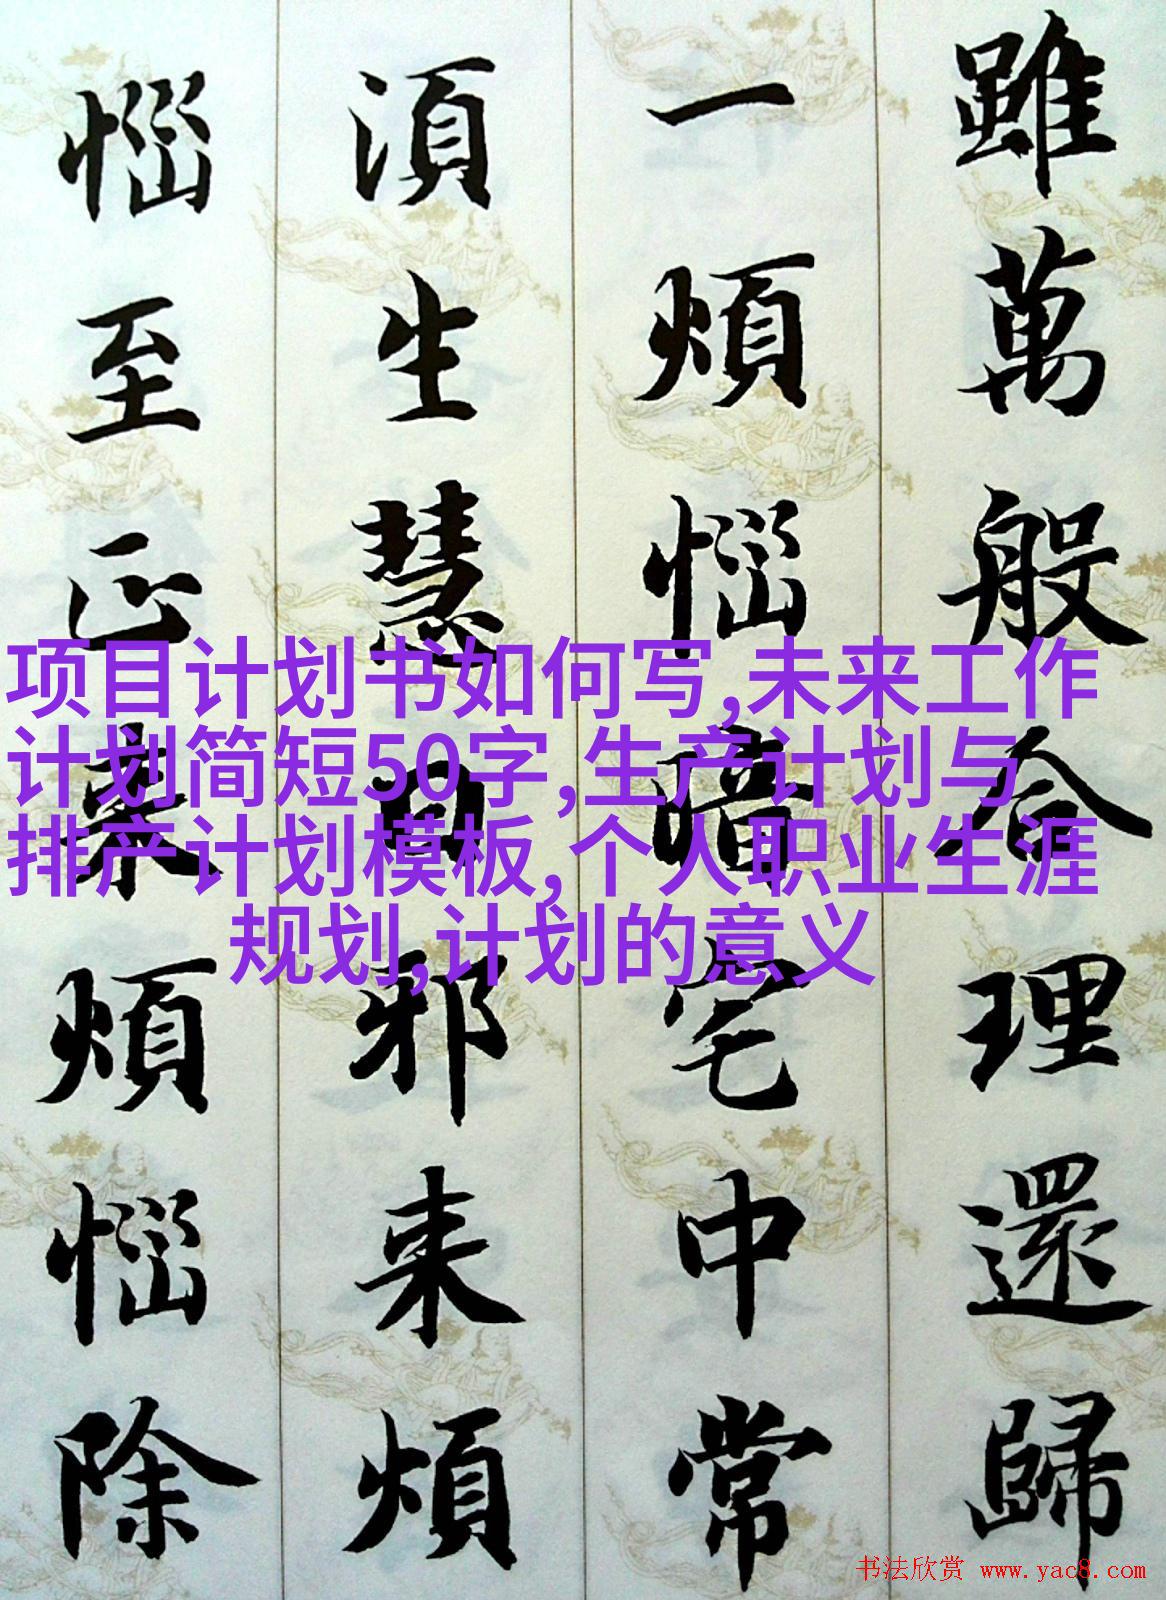 雖萬般合理還歸
一煩惱暗宅中常
湏生慧日邪来煩
惱至正来煩惱除
项目计划书如何写,未来工作
计划简短50字,生产计划与
排产计划模板,个人职业生涯
规划,计划的意义
书法欣赏 www.yac8.com